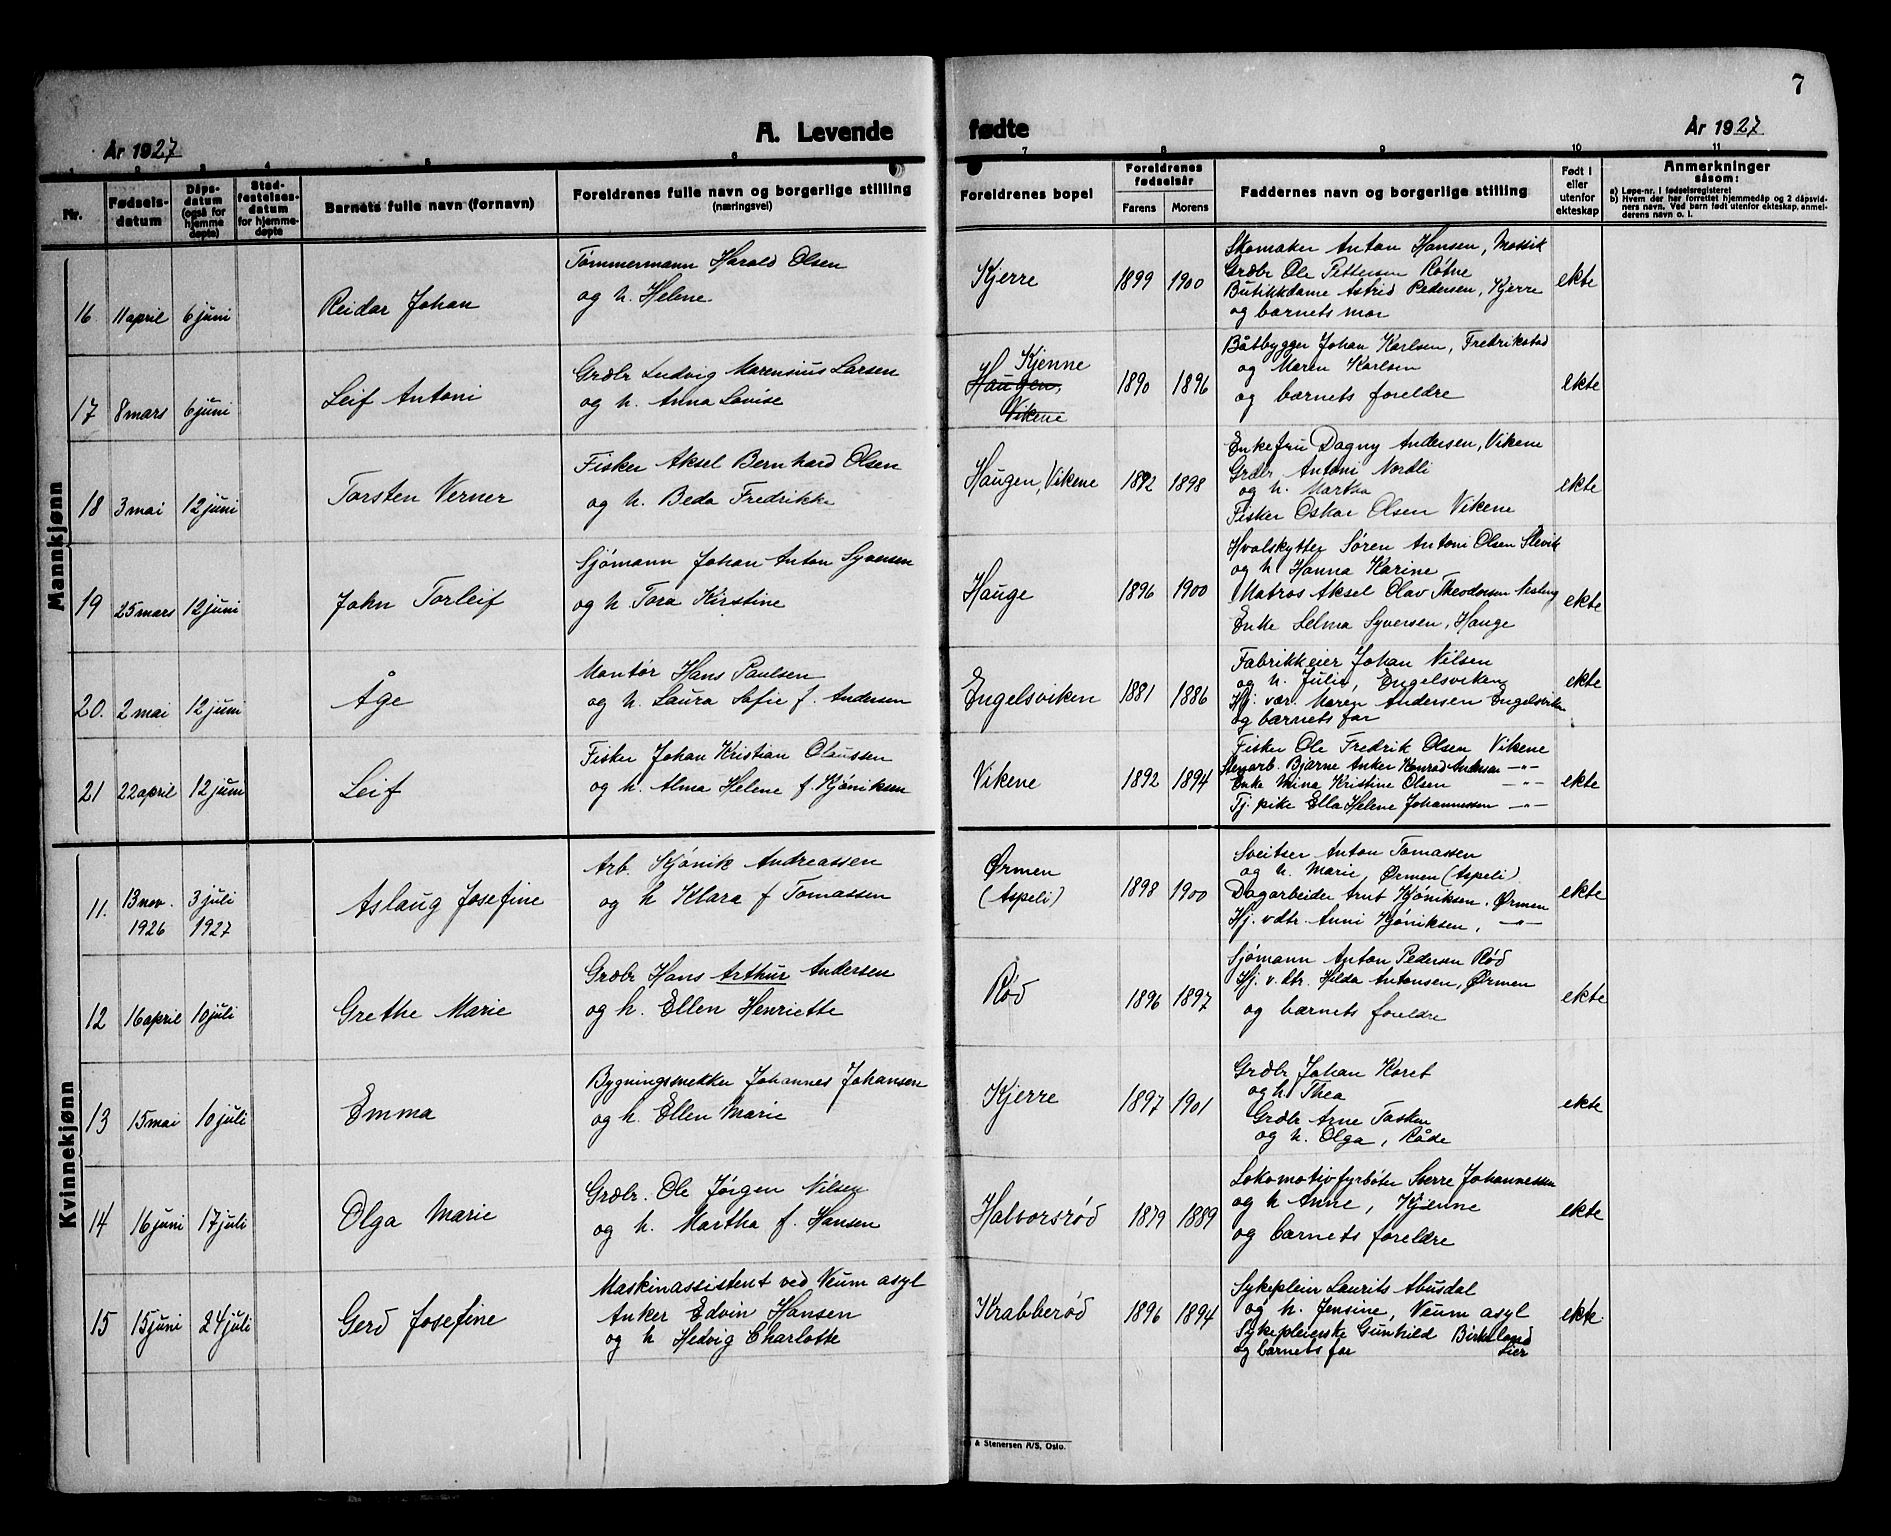 7
År 1927
A. Levende fødte
År 1927
1 2 3 4 5 6 7 8 9 10 11
Nr.
Fødsels-
datum
Dåps-
datum
(også for
hjemme
døpte)
Stad-
festelses-
datum
for hjemme-
døpte
Barnets fulle navn (fornavn)
Foreldrenes fulle navn og borgerlige stilling
(næringsvei)
Foreldrenes bopel
Foreldrenes
fødselsår
Farens Morens
Faddernes navn og borgerlige stilling
Født i
eller
utenfor
ekteskap
Anmerkninger
såsom:
a) Løpe-nr. i fødselsregisteret
b) Hvem der har forrettet hjemmedåp og 2 dåpsvid-
ners navn. Ved barn født utenfor ekteskap, anmel-
derens navn o. l.
Mannkjønn
16. 11 april 6 juni Reidar Johan
Tømmermann Harald Olsen
og h. Helene
Kjerre 1899 1900
Skomaker Anton Hansen, Mossik
Grdbr Ole Pettersen Røtne
Butikkdame Astrid Pedersen, Kjerre
og barnets mor
ekte
17 8 mars 6 juni Leif Antoni
Grdbr Ludvig Marensius Larsen
og h. Anna Lovise
Kjenne
Haugen,
Vikene
1890 1896
Båtbygger Johan Karlsen, Fredrikstad
og Maren Karlsen
og barnets foreldre
ekte
18 3 mai 12 juni Torsten Verner
Fisker Aksel Bernhard Olsen
og h. Beda Fredrikke
Haugen, Vikene 1892 1898
Enkefru Dagny Andersen, Vikene
Grdbr Antoni Nordli
og h. Martha
Fisker Oskar Olsen Vikene
ekte
19 25 mars 12 juni John Torleif
Sjømann Johan Anton Syversen
og h. Tora Kirstine
Hauge 1896 1900
Hvalskytter Søren Antoni Olsen Slevik
og h Hanna Karine
Matros Aksel Olav Theodorsen
Enke Selma Syversen, Hauge
ekte
20. 2 mai 12 juni Åge
Montør Hans Paulsen
og h. Laura Sofie f. Andersen
Engelsviken 1881 1886
Fabrikkeier Johan Nilsen
og h. Julie, Engelsviken
Hj. vær. Maren Andersen Engelsviken
og barnets far
ekte
21 22 april 12 juni Leif
Fisker Johan Kristian Olaussen
og h. Alma Helene f. Kjøniksen
Vikene 1892 1894
Fisker Ole Fredrik Olsen Vikene
Stenarb. Bjarne Anker Konrad Andersen —"—
Enke Mina Kristine Olsen —"—
Tj. pike Ella Helene Johannessen —"—
ekte
Kvinnekjønn
11. 13 nov. 1926 3 juli 1927 Aslaug Josefine
Arb. Kjønik Andreassen
og h Klara f Tomassen
Ørmen
(Aspeli)
1898 1900
Sveitser Anton Tomassen
og h. Marie, Ørmen (Aspeli)
Dagarbeider Arnt Kjøniksen. Ørmen
Hj. v dtr. Anni Kjøniksen, —"—
ekte
12 16 april 10 juli Grethe Marie
Grdbr Hans Arthur Andersen
og h. Ellen Henriette
Rød 1896 1897
Sjømann Anton Pedersen Rød
Hj. v. dtr. Hilda Antonsen, Ørmen
og barnets foreldre
ekte
13 15 mai 10 juli Emma
Bygningssnekker Johannes Johansen
og h. Ellen Marie
Kjerre 1897 1901
Grdbr Johan Koret
og h. Thea
Grdbr Arne Tasken
og h. Olga, Råde
ekte
14 16 juni 17 juli Olga Marie
Grdbr. Ole Jørgen Nilsen
og h. Martha f. Hansen
Halvorsrød 1879 1889
Lokomotivfyrbøter Sverre Johannessen
og h Anne, Kjenne
og barnets foreldre
ekte
15 15 juni 24 juli Gerd Josefine
Maskinassistent ved Veum asyl
Anker Edvin Hansen
og h Hedvig Charlotte
Krabberød 1896 1894
Sykepleier Laurits Abusdal
og h. Jensine, Veum asyl
Sykepleierske Gunhild Birkeland
og barnets far Lier
ekte.
& Stenersen A/S, Oslo.